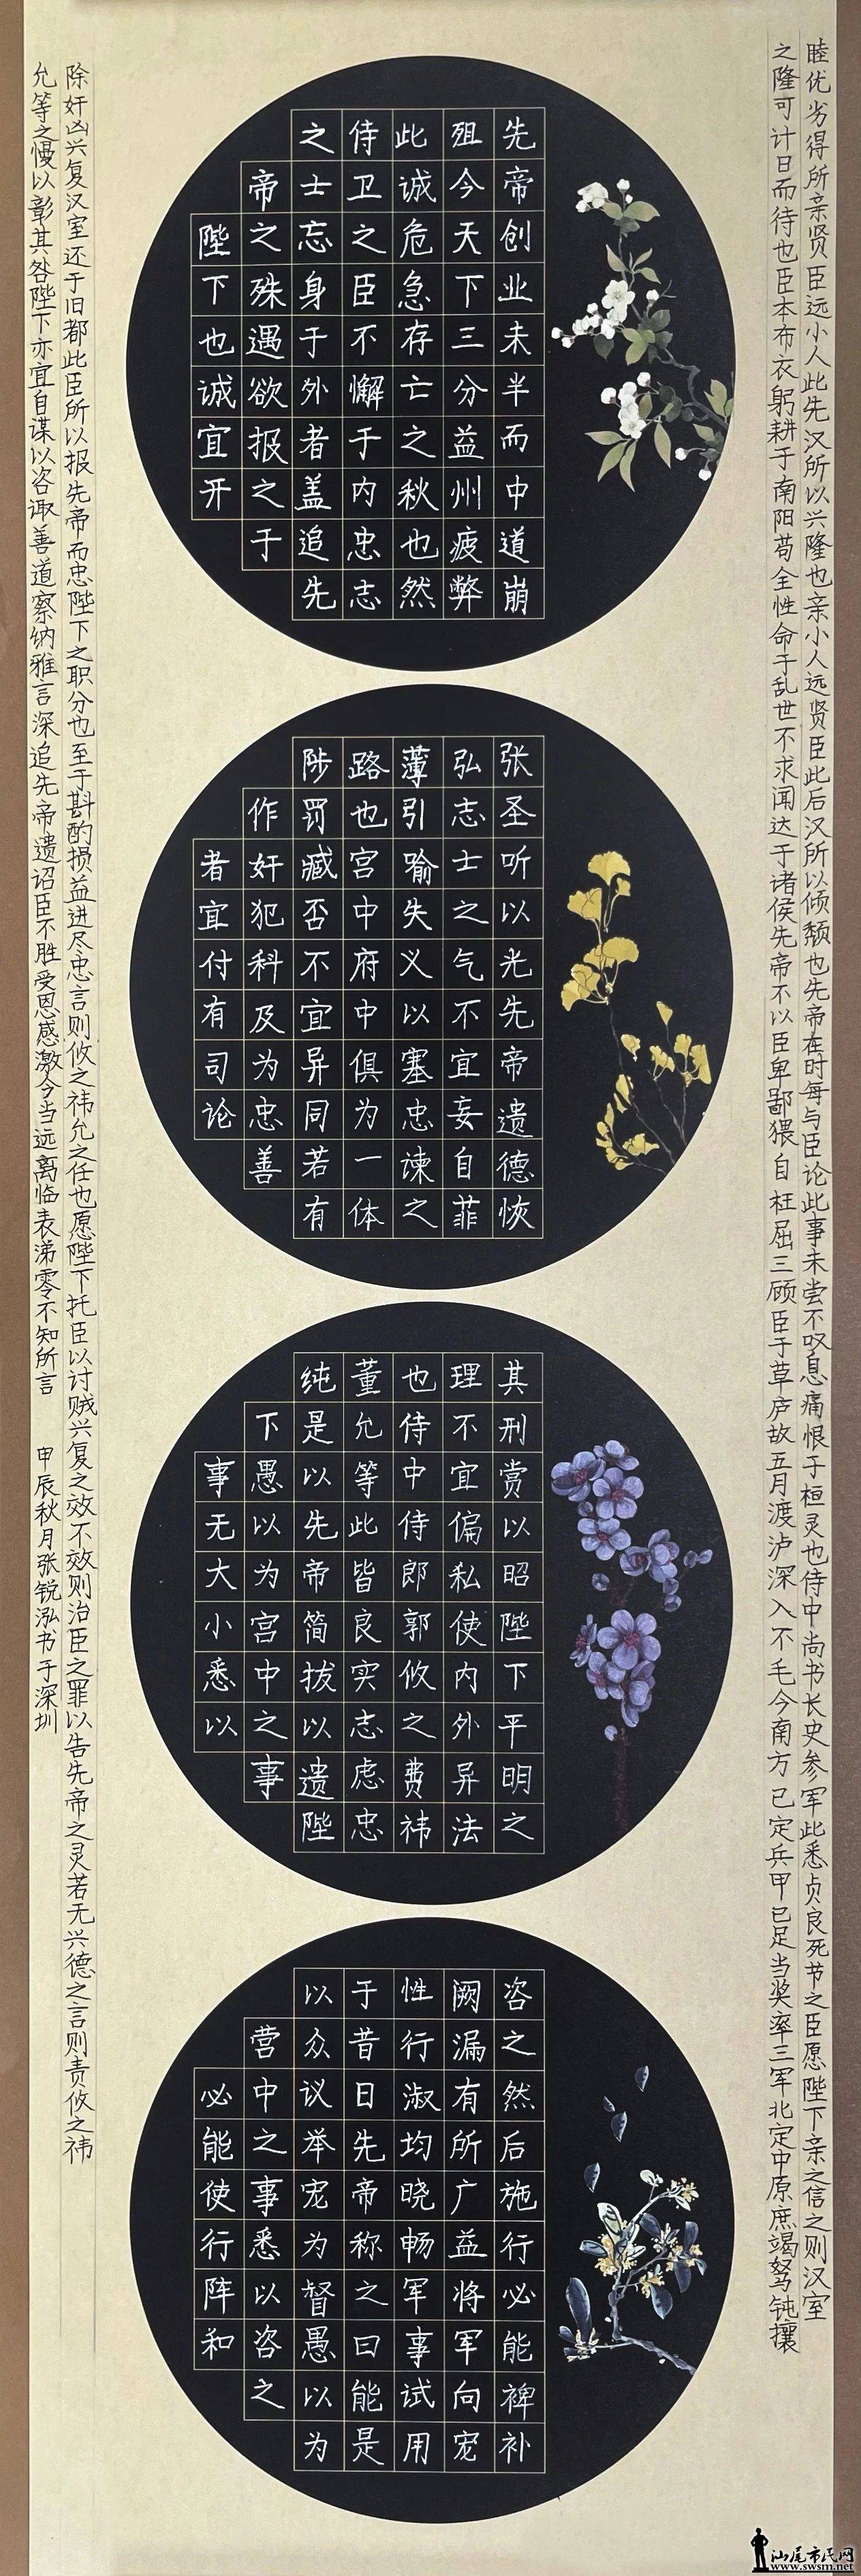 先帝创业未半而中道崩
殂今天下三分益州疲弊
此诚危急存亡之秋也然
侍卫之臣不懈于内忠志
之士忘身于外者盖追先
帝之殊遇欲报之于
陛下也诚宜开
张圣听以光先帝遗德恢
弘志士之气不宜妄自菲
薄引喻失义以塞忠谏之
路也宫中府中俱为一体
陟罚臧否不宜异同若有
作奸犯科及为忠善
者宜付有司论
其刑赏以昭陛下平明之
理不宜偏私使内外异法
也侍中侍郎郭攸之费祎
董允等此皆良实志虑忠
纯是以先帝简拔以遗陛
下愚以为宫中之事
事无大小悉以
咨之然后施行必能裨补
阙漏有所广益将军向宠
性行淑均晓畅军事试用
于昔日先帝称之曰能是
以众议举宠为督愚以为
营中之事悉以咨之
必能使行阵和
睦优劣得所亲贤臣远小人此先汉所以兴隆也亲小人远贤臣此后汉所以倾颓也先帝在时每与臣论此事未尝不叹息痛恨于桓灵也侍中尚书长史参军此悉贞良死节之臣愿陛下亲之信之则汉室
之隆可计日而待也臣本布衣躬耕于南阳苟全性命于乱世不求闻达于诸侯先帝不以臣卑鄙猥自枉屈三顾臣于草庐故五月渡泸深入不毛今南方已定兵甲已足当奖率三军北定中原庶竭驽钝攘
除奸凶兴复汉室还于旧都此臣所以报先帝而忠陛下之职分也至于斟酌损益进尽忠言则攸之祎允之任也愿陛下托臣以讨贼兴复之效不效则治臣之罪以告先帝之灵若无兴德之言则责攸之祎
允等之慢以彰其咎陛下亦宜自谋以咨诹善道察纳雅言深追先帝遗诏臣不胜受恩感激今当远离临表涕零不知所言 甲辰秋月张锐泓书于深圳
汕尾市民网
www.swsm.net